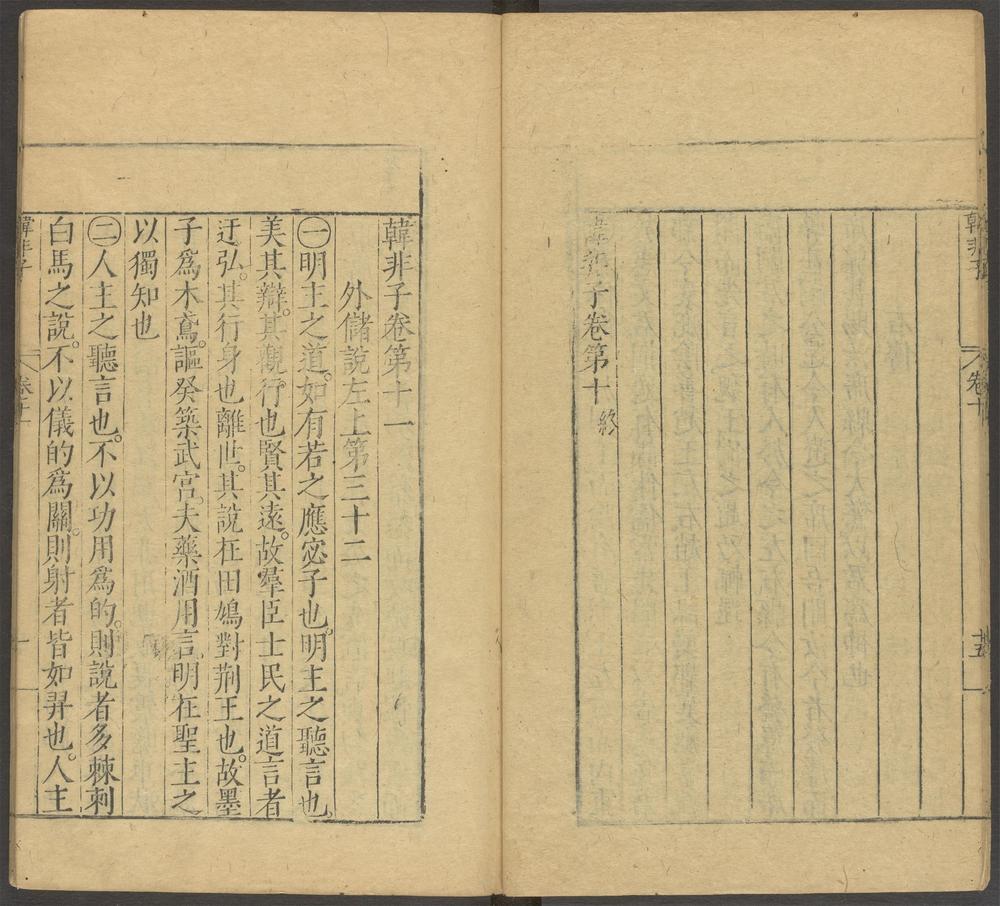 韓非子
卷十
十五
韓非子卷第十 終
韓非子卷第十一
外儲說左上第三十二
㊀明主之道。如有若之應宓子也。明主之聽言也。
美其辯。其觀行也賢其遠。故羣臣士民之道言者
迂弘。其行身也離世。其說在田鳩對荆王也。故墨
子爲木鳶。謳癸築武宮。夫藥酒用言明在聖主之
以獨知也
㊁人主之聽言也。不以功用爲的。則說者多棘刺
白馬之說。不以儀的爲關。則射者皆如羿也。人主
韓非子
卷十一
一